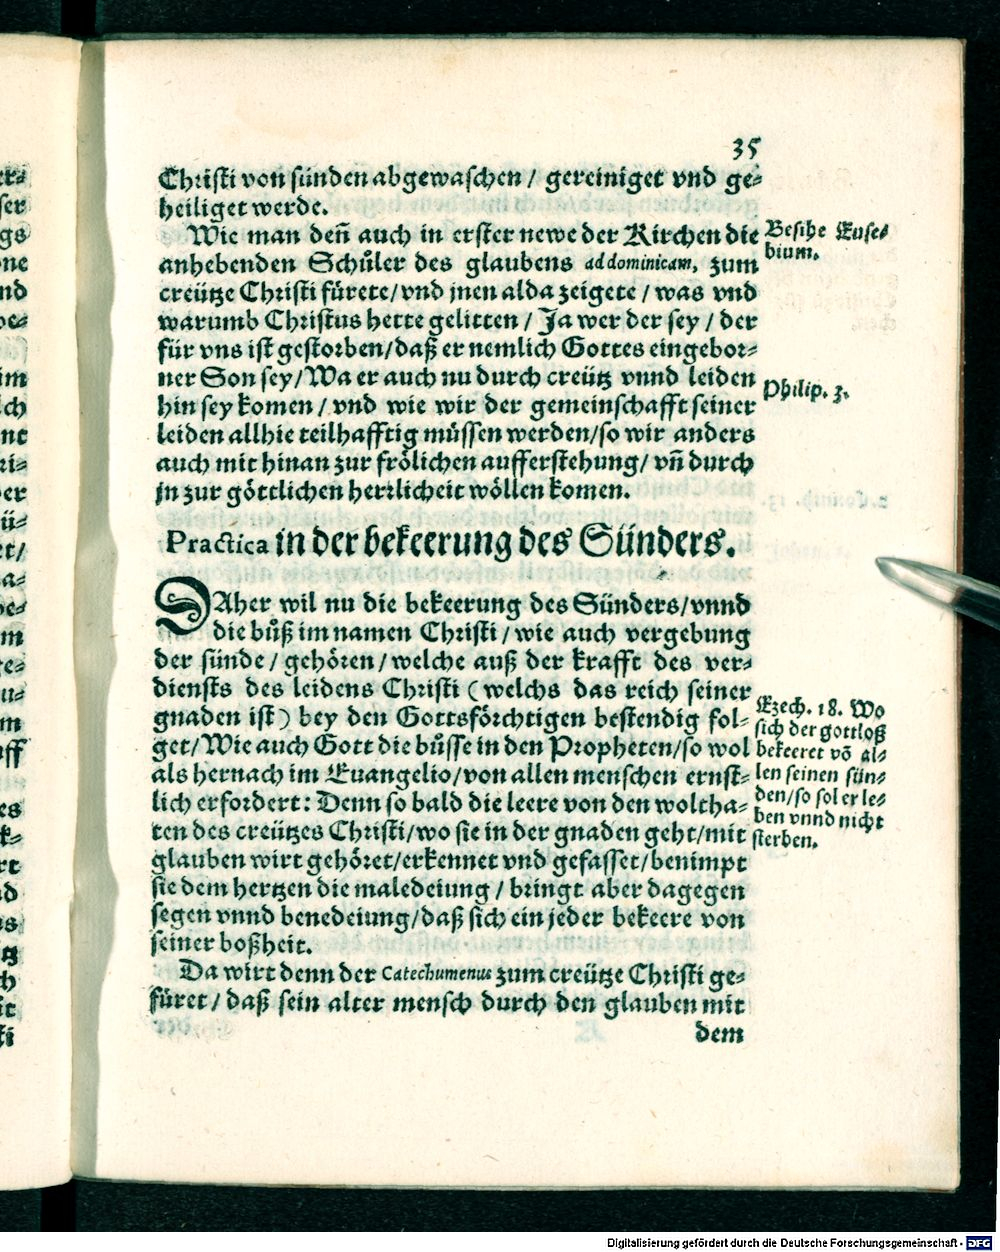 35
Christi von sünden abgewaschen / gereiniget vnd ge-
heiliget werde.
Wie man deñ auch in erster newe der Kirchen die
anhebenden Schůler des glaubens ad dominicam, zum
creütze Christi fürete/vnd jnen alda zeigete / was vnd
warumb Christus hette gelitten / Ja wer der sey / der
für vns ist gestorben/daß er nemlich Gottes eingebor-
ner Son sey/Wa er auch nu durch creütz vnnd leiden
hin sey komen / vnd wie wir der gemeinschafft seiner
leiden allhie teilhafftig müssen werden/so wir anders
auch mit hinan zur frölichen aufferstehung/ vñ durch
jn zur göttlichen herrlicheit wöllen komen.
Besihe Euse-
bium.
Philip. 3.
Practica in der bekeerung des Sünders.
DAher wil nu die bekeerung des Sünders/vnnd
die bůß im namen Christi / wie auch vergebung
der sünde / gehören / welche auß der krafft des ver-
diensts des leidens Christi ( welchs das reich seiner
gnaden ist ) bey den Gottsförchtigen bestendig fol-
get/Wie auch Gott die bůsse in den Propheten/so wol
als hernach im Euangelio/von allen menschen ernst-
lich erfordert: Denn so bald die leere von den woltha-
ten des creützes Christi/wo sie in der gnaden geht/mit
glauben wirt gehöret/erkennet vnd gefasset/benimpt
sie dem hertzen die maledeiung / bringt aber dagegen
segen vnnd benedeiung/daß sich ein jeder bekeere von
seiner boßheit.
Ezech. 18. Wo
sich der gottloß
bekeeret võ al-
len seinen sün-
den/so sol er le-
ben vnnd nicht
sterben.
Da wirt denn der Catechumenus zum creütze Christi ge-
füret / daß sein alter mensch durch den glauben mit
dem
Digitalisierung gefördert durch die Deutsche Forschungsgemeinschaft - DFG